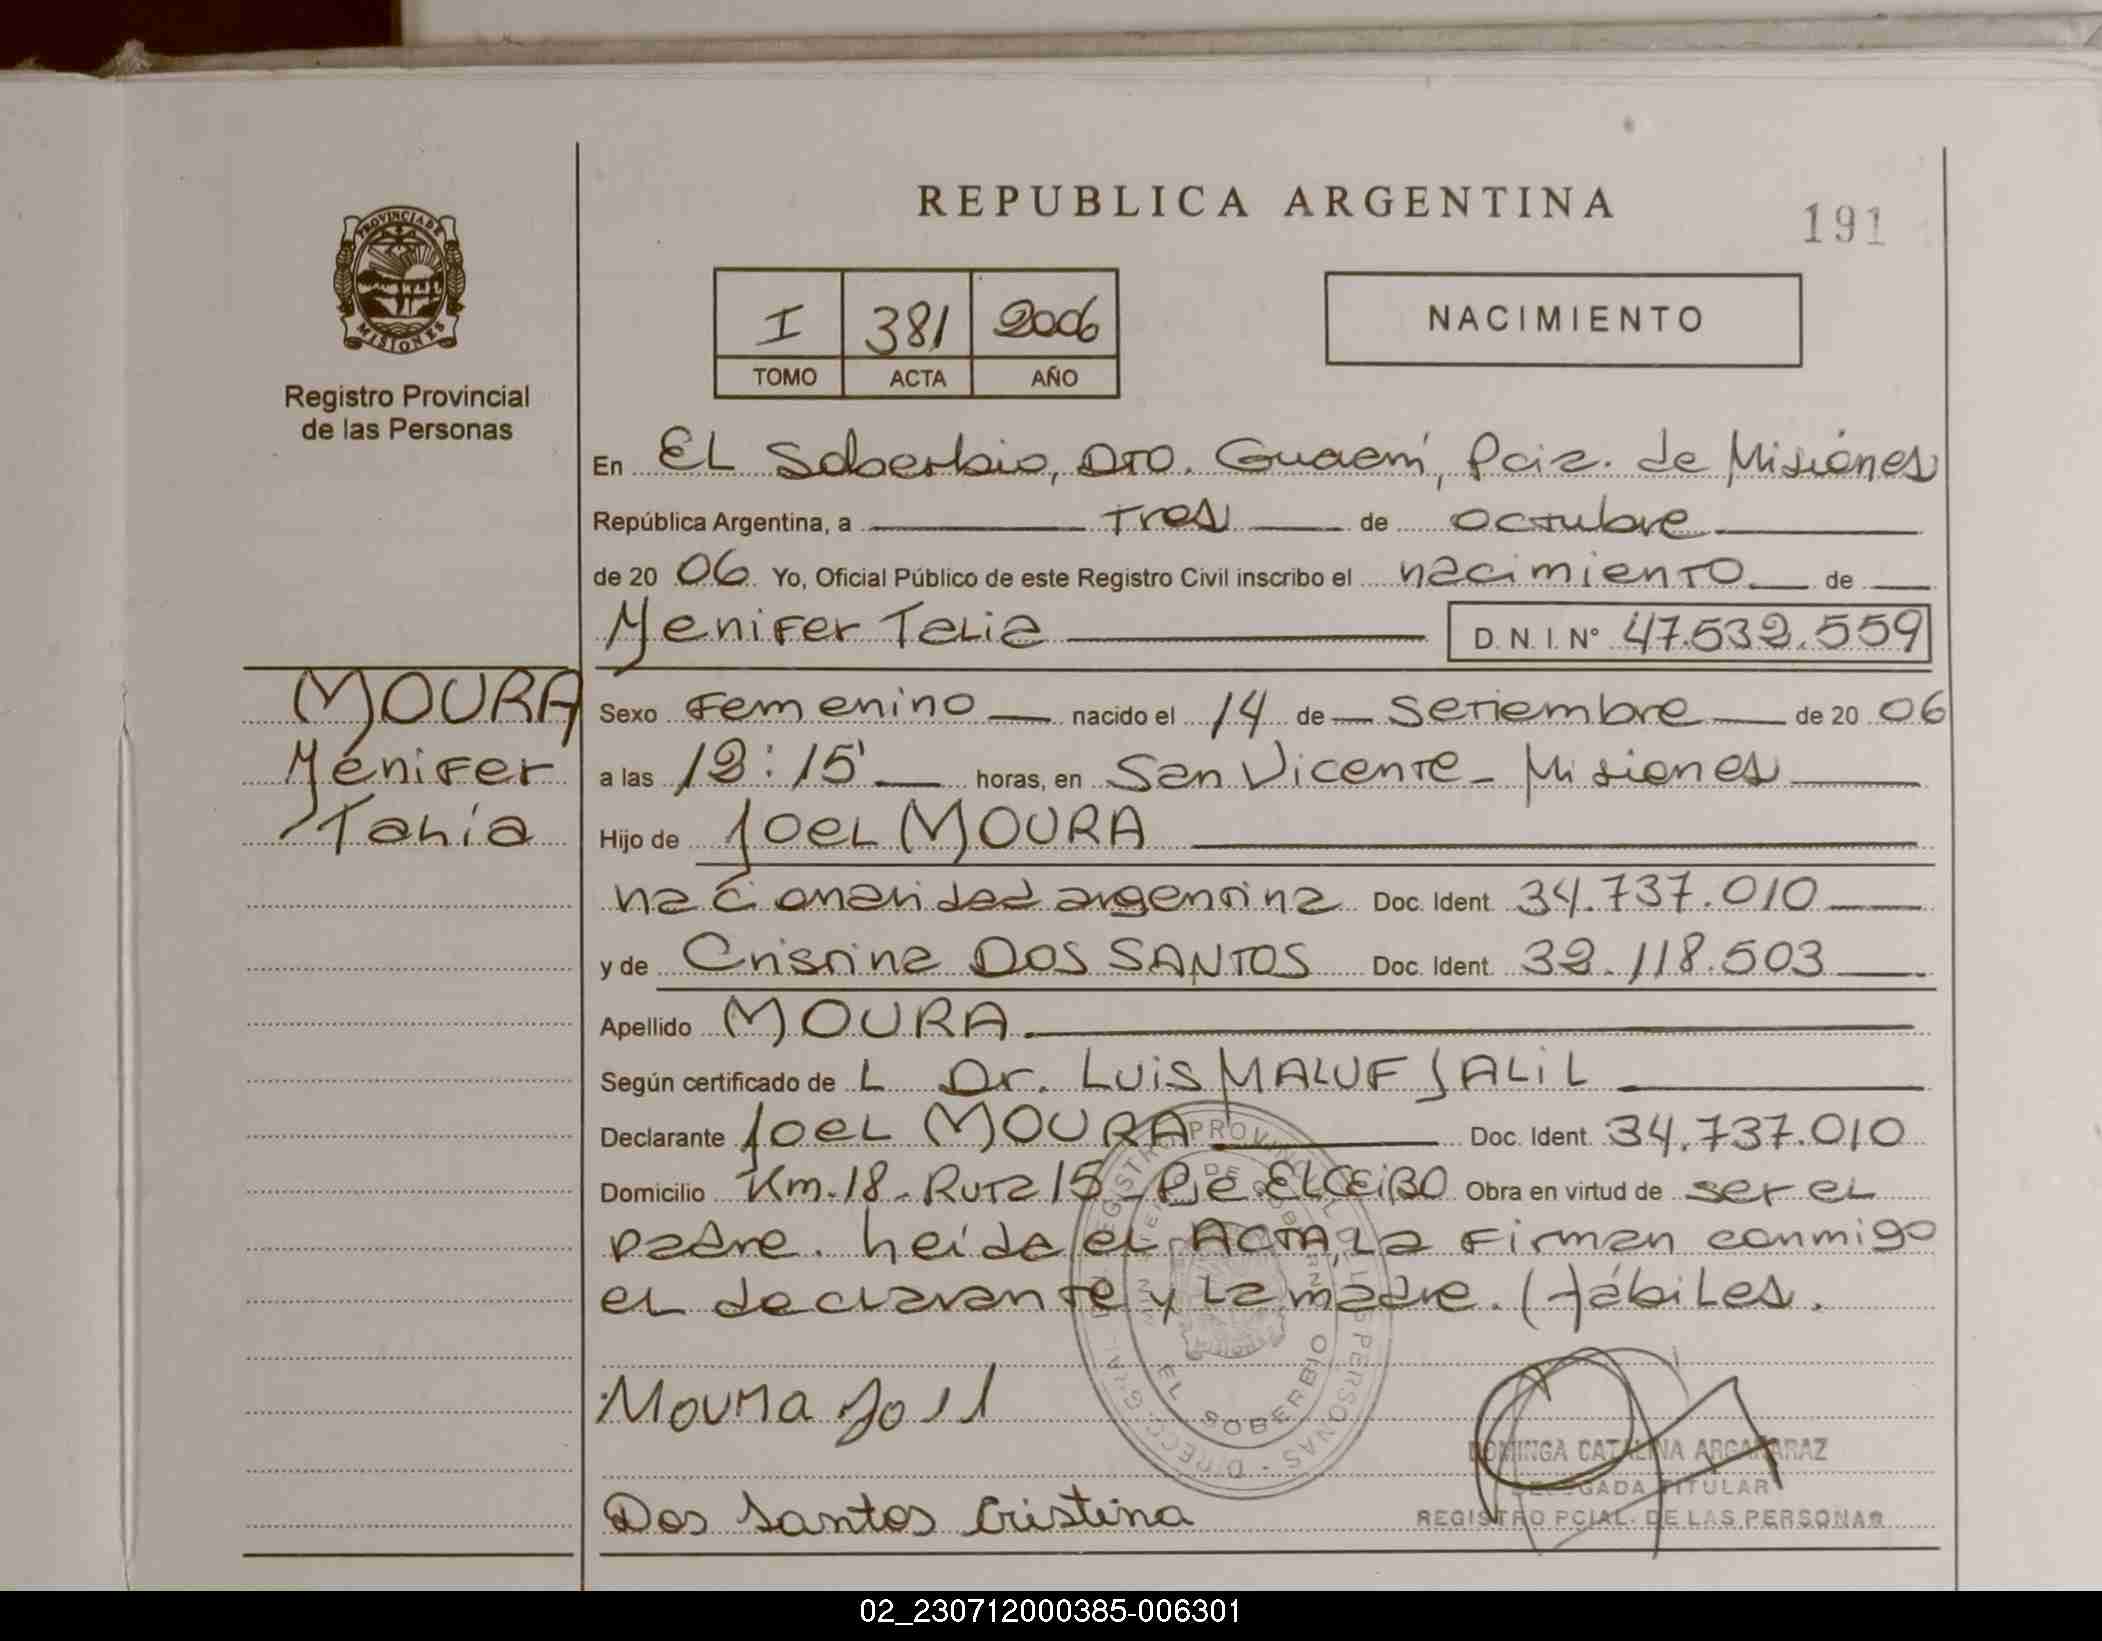 REPUBLICA ARGENTINA
191
PROVINCIA DE
MISIONES
Registro Provincial
de las Personas
I 381 2006
TOMO ACTA AÑO
NACIMIENTO
En EL Soberbio, DTO. Guaraní, Pcia. de Misiones
República Argentina, a Tres de octubre
de 20 06 Yo, Oficial Público de este Registro Civil inscribo el nacimiento de
Yenifer Talia D. N. I. Nº 47.532.559
MOURA
Yenifer
Talia
Sexo Femenino nacido el 14 de Setiembre de 20 06
a las 12:15' horas, en San Vicente - Misiones
Hijo de Joel MOURA
nacionalidad argentina Doc. Ident. 34.737.010
y de Cristina DOS SANTOS Doc. Ident. 32.118.503
Apellido MOURA.
Según certificado de L Dr. Luis MALUF JALIL
Declarante Joel MOURA Doc. Ident. 34.737.010
Domicilio Km.18 - Ruta 15 - Pje EL CEiBO Obra en virtud de ser el
padre. Leida el ACTA, La firman conmigo
el declarante y La madre. Hábiles.
Moura Joel
Dos Santos Cristina
EL SOBERBIO
DOMINGA CATALINA ARGAÑARAZ
DELEGADA TITULAR
REGISTRO PCIAL. DE LAS PERSONAS
02_230712000385-006301